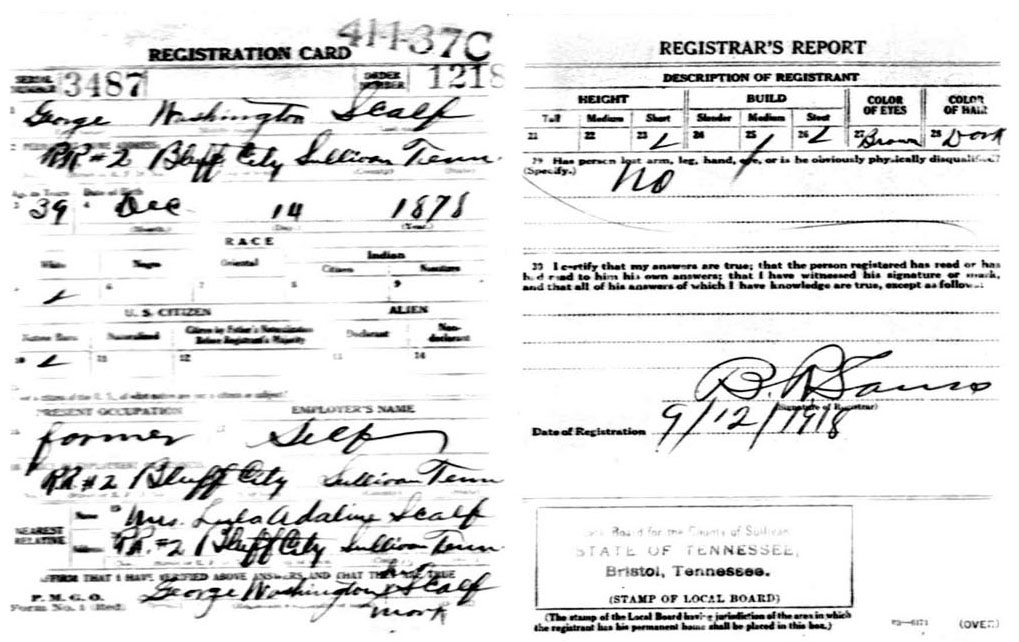 411-37C
REGISTRATION CARD
SERIAL NUMBER 3487 ORDER NUMBER 1218
1 George Washington Scalf
2 RR #2 Bluff City Sullivan Tenn.
Age in Years Date of Birth
3 39 4 Dec 14 1878
(Month.) (Day.) (Year.)
RACE
White Negro Oriental Indian
Citizen Noncitizen
6 7 8 9
U. S. CITIZEN ALIEN
Native Born Naturalized Citizen by Father's Naturalization Before Registrant's Majority Declarant Non-declarant
10 11 12 13 14
If not a citizen of the U. S., of what nation are you a citizen or subject?
PRESENT OCCUPATION EMPLOYER'S NAME
farmer Self
RR #2 Bluff City Sullivan Tenn
NEAREST RELATIVE Name Mrs. Lula Adaline Scalf
Address RR. #2 Bluff City Sullivan Tenn.
AFFIRM THAT I HAVE VERIFIED ABOVE ANSWERS AND THAT THEY ARE TRUE
P. M. G. O.
Form No. 1 (Red) George Washington Scalf
mark
REGISTRAR'S REPORT
DESCRIPTION OF REGISTRANT
HEIGHT BUILD COLOR OF EYES COLOR OF HAIR
Tall Medium Short Slender Medium Stout
21 22 23 24 25 26 27 Brown 28 Dark
29 Has person lost arm, leg, hand, eye, or is he obviously physically disqualified?
(Specify.) No
30 I certify that my answers are true; that the person registered has read or has
had read to him his own answers; that I have witnessed his signature or mark,
and that all of his answers of which I have knowledge are true, except as follows:
(Signature of Registrar)
Date of Registration 9/12/1918
Local Board for the County of Sullivan
STATE OF TENNESSEE,
Bristol, Tennessee.
(STAMP OF LOCAL BOARD)
(The stamp of the Local Board having jurisdiction of the area in which
the registrant has his permanent home shall be placed in this box.)
(OVER)